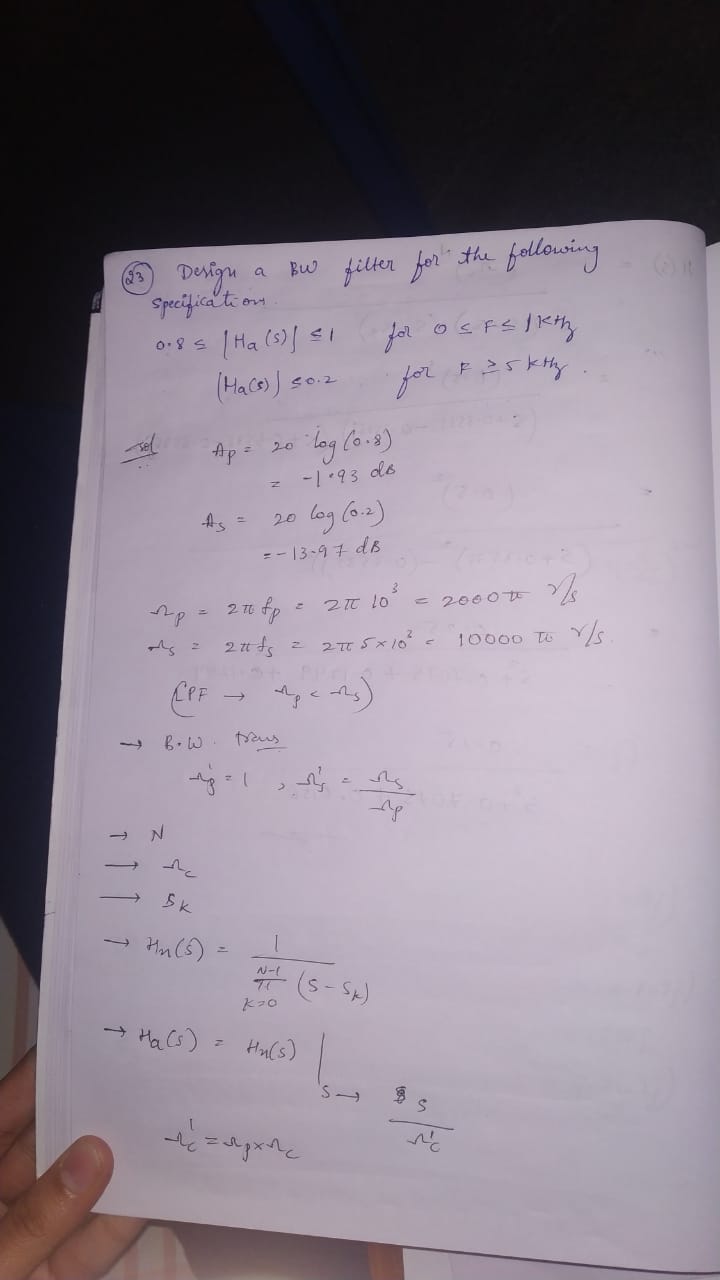 (23) Design a BW filter for the following
specification.
0.8 ≤ |Ha(s)| ≤ 1 for 0 ≤ F ≤ 1 KHz
|Ha(s)| ≤ 0.2 for F ≥ 5 KHz.
sol Ap = 20 log (0.8)
= -1.93 dB
As = 20 log (0.2)
= -13.97 dB
Ωp = 2π fp = 2π 10³ = 2000 π r/s
Ωs = 2π fs = 2π 5×10³ = 10000 π r/s.
(LPF → Ωp < Ωs)
→ B.W. trans
Ω'p = 1 , Ω's = Ωs / Ωp
→ N
→ Ωc
→ Sk
→ Hn(s) = 1 / N-1 π k=0 (s - sk)
→ Ha(s) = Hn(s) | s → s / Ω'c
Ω'c = Ωp × Ωc